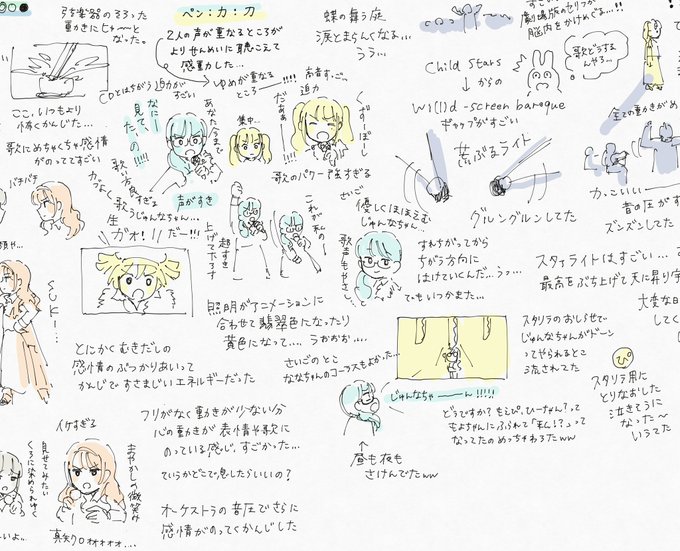 弦楽器のそろった
動きにじゃ〜〜と
なった。
ここ、いつもより
怖くかんじた…
歌にめちゃくちゃ感情
がのっててすごい
バチバチ
ペン:力:刀
2人の声が重なるところが
よりせんめいに聴こえて
感動した…
CDとはちがう迫力が
すごい
ゆめが重なる
ところ
なにー
見てたの!!!!
あなた今まで
集中…
高音すっご。
迫力
だぁぁ!!!!
歌のパワー強すぎる
声がすき
ガオ!!
だー!!!
超すき
上げて下ろす
これが私の
さいご
優しくほほえむ
じゅんなちゃん…
歌声もやさし…
照明がアニメーションに
合わせて翡翠色になったり
黄色になって…。うおぉぉ…。
とにかくむきだしの
感情のぶつかりあいって
かんじですさまじいエネルギーだった
さいごのとこ
ななちゃんのコーラスもよかった…
じゅんなちゃーーーん!!!!!
昼も夜も
さけんでたww
フリがなく動きが少ない分
心の動きが表情や歌に
のっている感じ、すごかった…
ていうかどこで息したらいいの?
オーケストラの音圧でさらに
感情がのってくかんじした
イケすぎる
見せてみたい
くろに染められゆく
まやかしの微笑み
蝶の舞う庭
涙とまらんくなる…
うう…
Child Stars
からの
wi(l)d-screen baroque
ギャップがすごい
荒ぶるライト
グルングルンしてた
劇場版のセリフが
脳内をかけめぐる…!!
歌どうする
んやろ…
全ての動きがめ
カッこいい…
音の圧がす
ズンズンしてた
すれちがってから
ちがう方向に
はけていくんだ…うっ…
でもいつかまた…
スタァライトはすごい…さ
最高をぶち上げて天に昇り
大変な日
してく
スタリラのおしらせで
じゅんなちゃんがドーン
ってやられるとこ
流されてた
スタリラ用に
とりなおした
泣きそうに
なった〜
いうてた
どうですか?もえぴ、ひーちゃん?って
もよちゃんにふられて「私!?」って
なってたのめっちゃわろたww